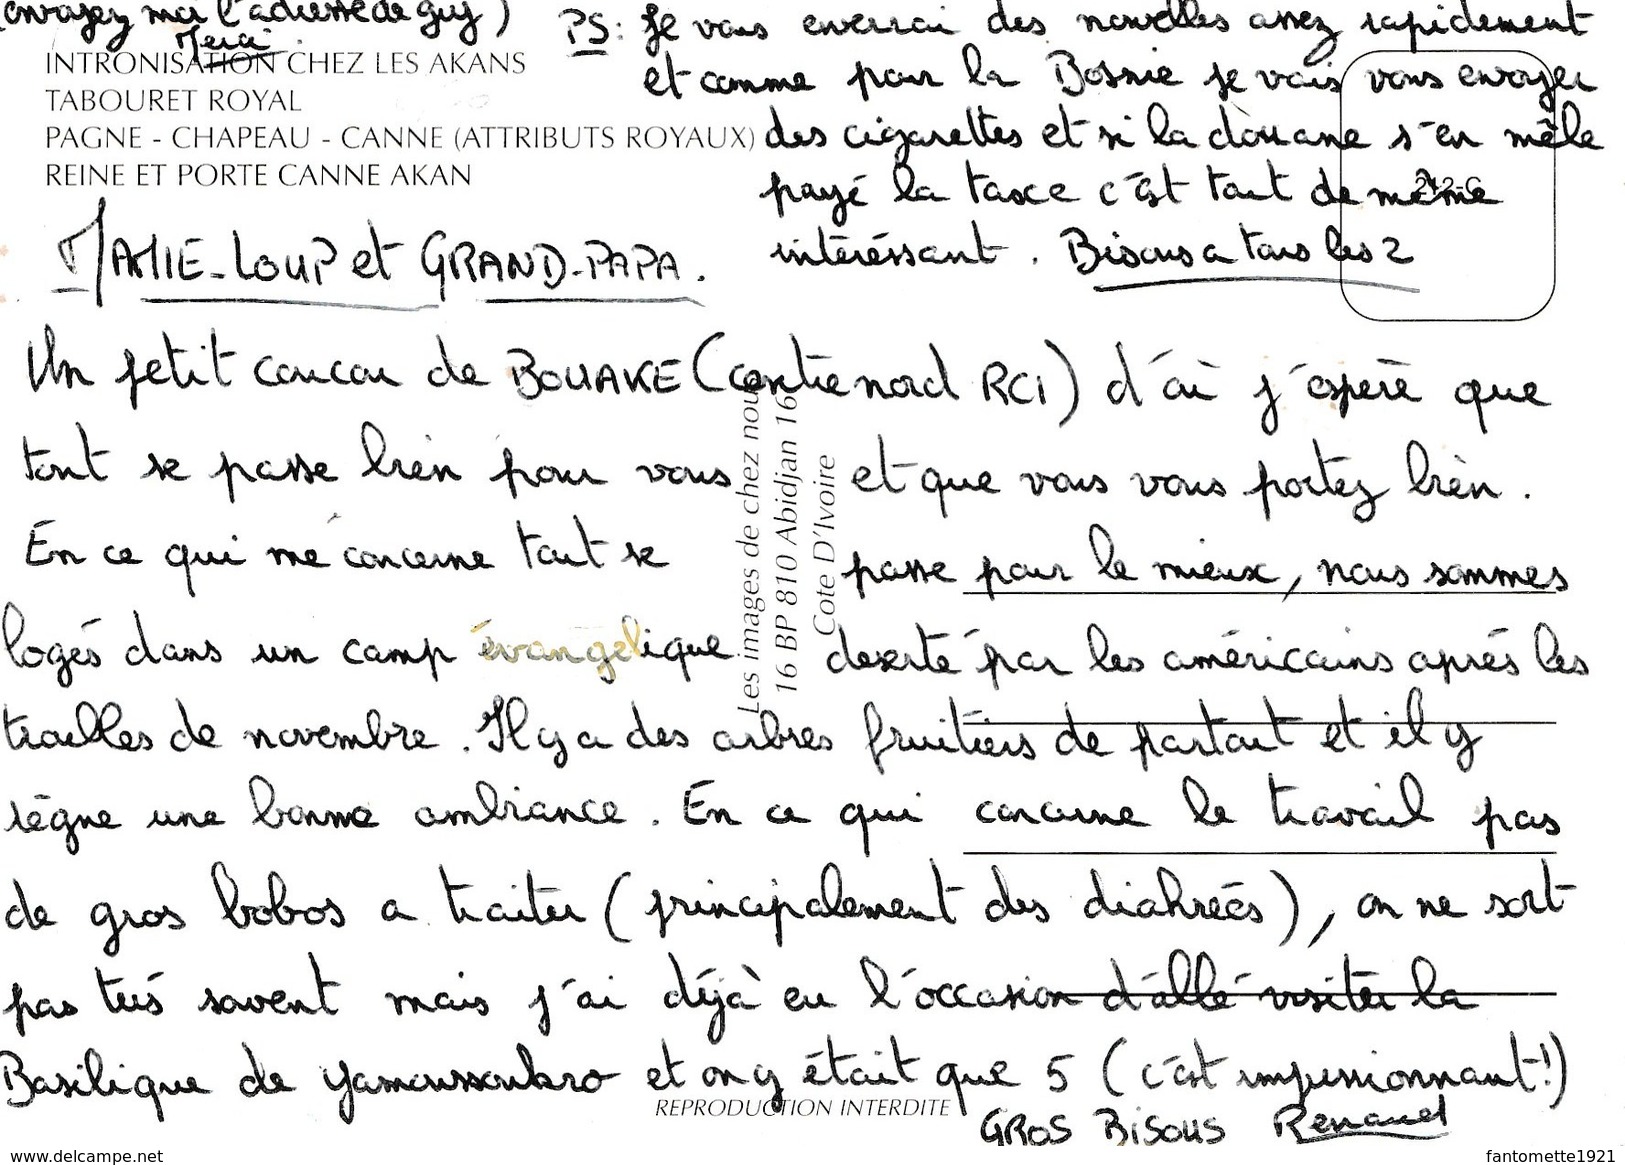 (envoyez moi l'adresse de guy)
Merci
PS: Je vous enverrai des nouvelles assez rapidement
et comme pour la Bosnie je vais vous envoyer
des cigarettes et si la douane s'en mêle
payé la taxe c'est tout de même
intéréssant. Bisous a tous les 2
INTRONISATION CHEZ LES AKANS
TABOURET ROYAL
PAGNE - CHAPEAU - CANNE (ATTRIBUTS ROYAUX)
REINE ET PORTE CANNE AKAN
212-C
MAMIE-LOUP et GRAND-PAPA.
Un petit coucou de BOUAKE (centre nord RCI) d'où j'éspère que
tout se passe bien pour vous et que vous vous portez bien.
En ce qui me concerne tout se passe pour le mieux, nous sommes
logés dans un camp évangelique deserté par les américains après les
troubles de novembre. Il y a des arbres fruitiers de partout et il y
règne une bonne ambiance. En ce qui concerne le travail pas
de gros bobos a traiter (principalement des diahrées), on ne sort
pas très souvent mais j'ai déjà eu l'occasion d'allé visiter la
Basilique de yamoussoukro et on y était que 5 (c'est impressionnant!)
GROS BISOUS Renaud
Les images de chez nous
16 BP 810 Abidjan 16
Cote D'Ivoire
REPRODUCTION INTERDITE
www.delcampe.net
fantomette1921